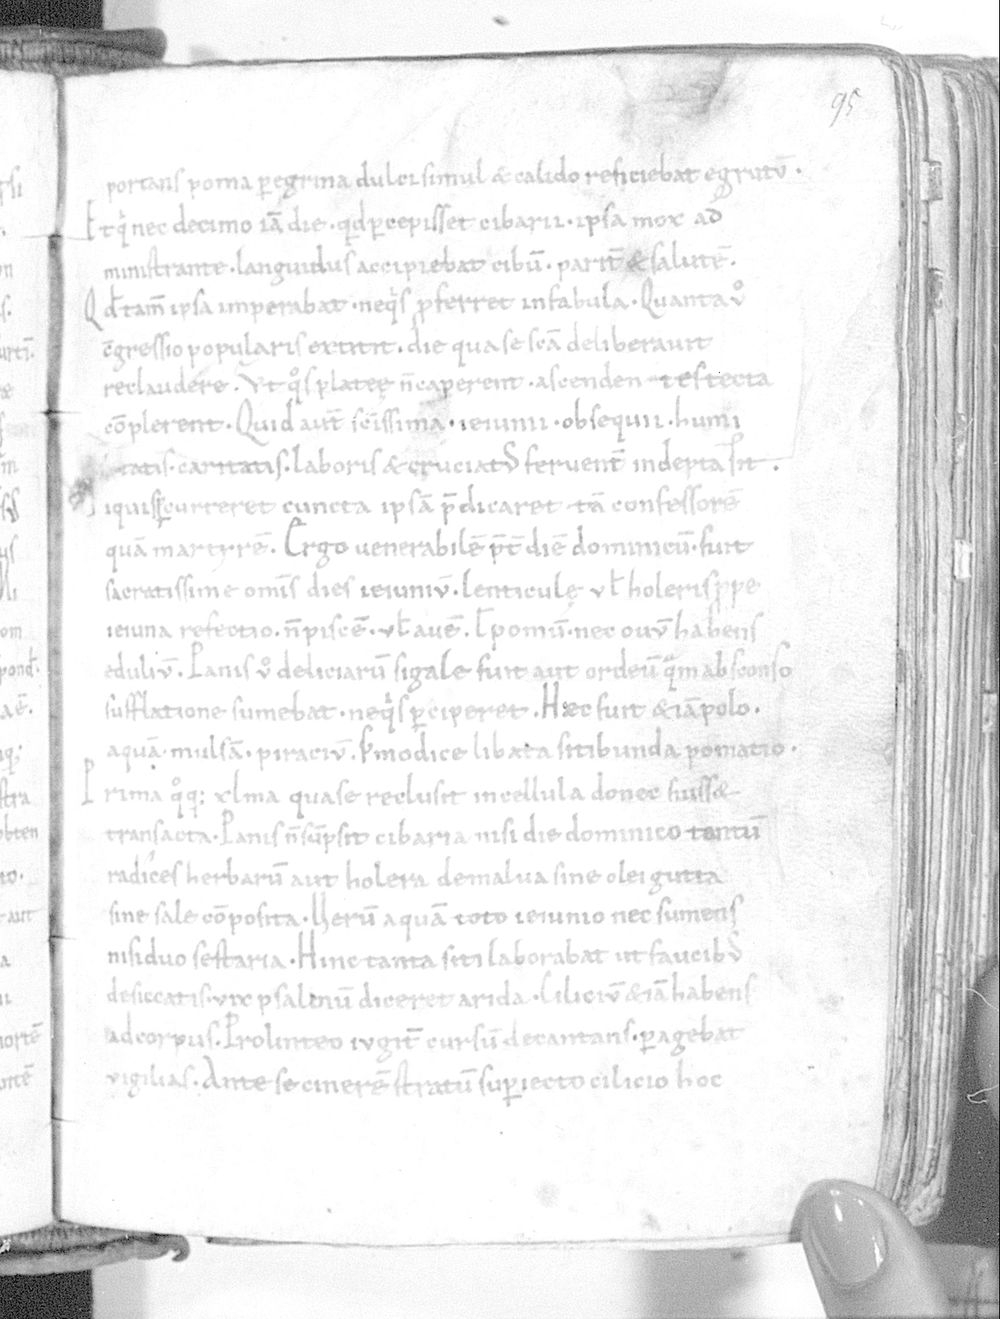 95
portans poma peregrina dulci simul & calido reficiebat egrotū.
Et qͥ nec decimo iā die · qd p̱cepisset cibarii · ipsa mox ad
ministrante · languidus accipiebat cibū · parit̄ & salutē.
Qd̄ tam̄ ipsa imperabat · neqͥs p̱ferret in fabula · Quanta v̊
c̄gressio popularis extitit · die qua se sc̄a deliberavit
recludere. Vt qͦs plateę n̄ caperent · ascenden tes tecta
cōplerent · Quid aut̄ sc̄issima · ieiunii · obsequii · humi
tatis · caritatis · laboris & cruciatꝰ fervent̄ inderta sit.
iquis p̱curreret cuncta ipsā p̄dicaret tā confessorē
quā martyrē. Ergo venerabilē p̄t̄ diē dominicū · fuit
sacratissime omīs dies ieiuniū · lenticulę vl̄ holeris p̱pe
ieiuna refectio · n̄ piscē · vl̄ avē · l̄ pomū · nec ovū habens
eduliū. Panis v̊ deliciarū sigale fuit aut ordeū qͣm absconso
sufflatione sumebat · neqͥs p̱ciperet. Haec fuit & iā polo.
aquā mulsā · piraciū · P̱ modice libata sitibunda pomatio.
Prima qͦq; xlma qua se reclusit in cellula donec fuiss&
transacta · Panis n̄ sūpsit cibaria nisi die dominico tantū
radices herbarū aut holera de malva sine olei gutta
sine sale cōposita · Uerū aquā toto ieiunio nec sumens
nisi duo sestaria · Hinc tanta siti laborabat ut faucibꝰ
desiccatis · vix psalmū diceret arida · Ciliciū & iā habens
ad corpus. Pro linteo iugit̄ cursū decantans · p̱agebat
vigilias. Ante se cinerē stratū sup̱iecto cilicio hoc